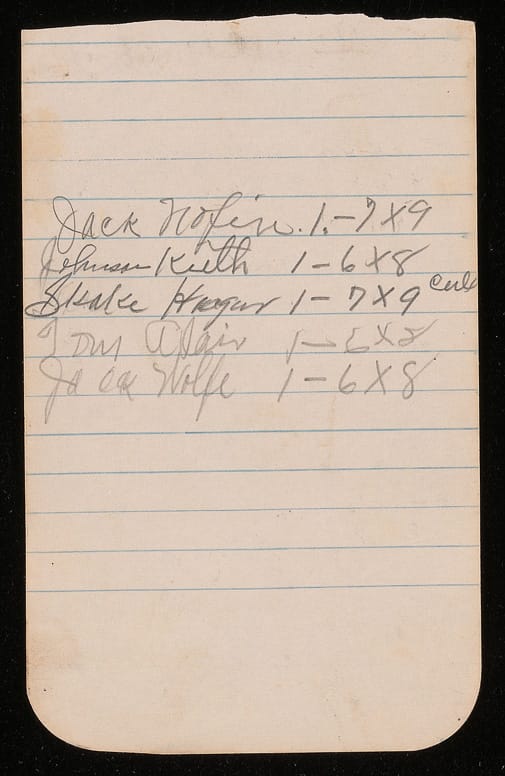 Jack 1.-7x9
Johnson Keith 1-6x8
1-7x9
Tom Adair 1-6x8
Jack Wolfe 1-6x8